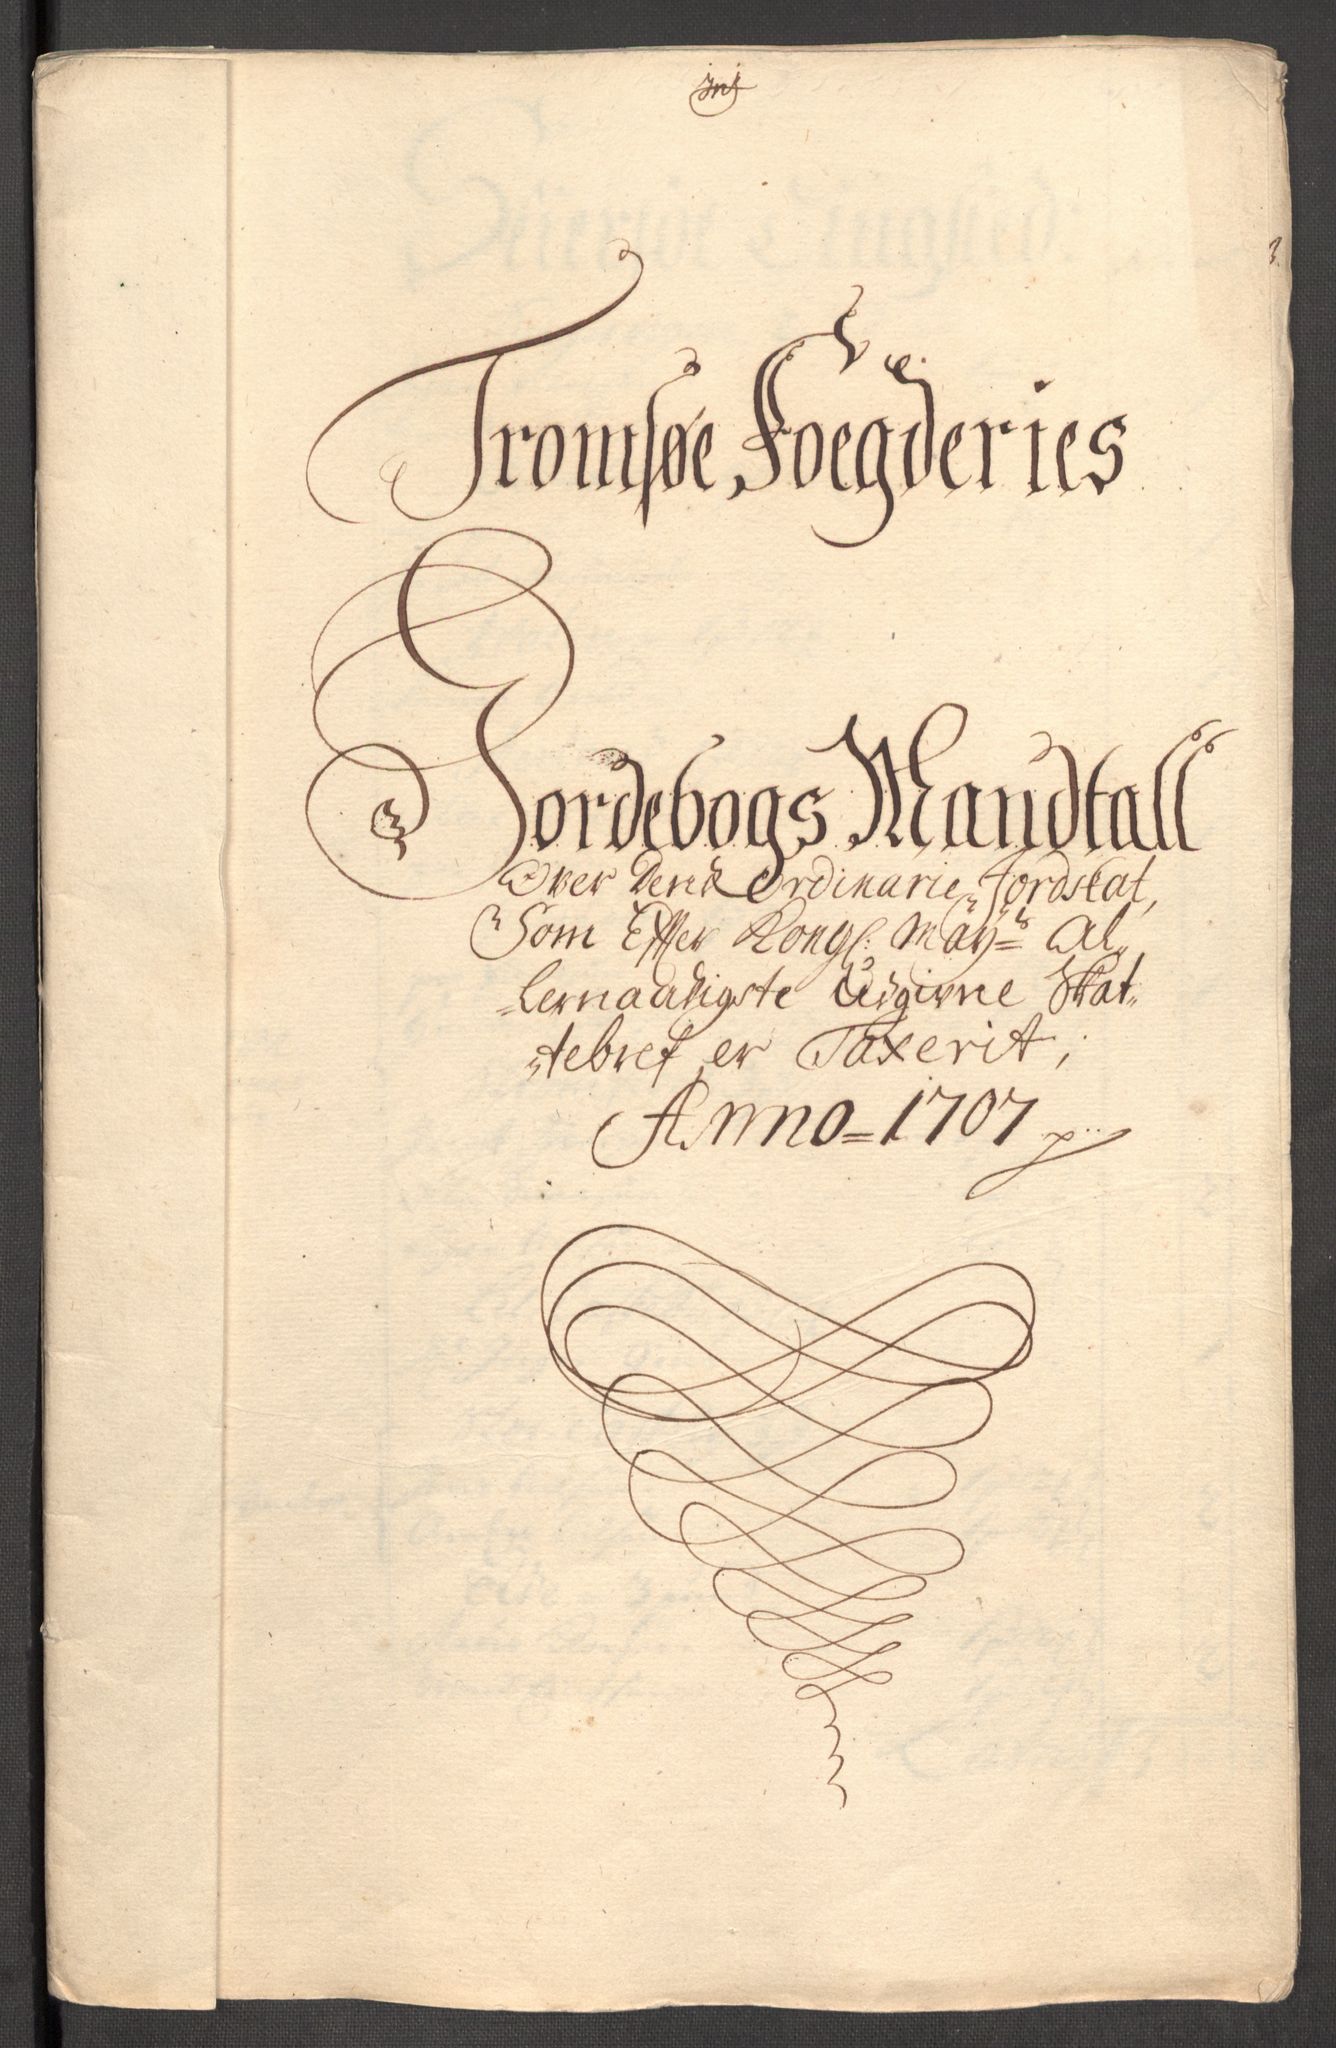 Tromsøe Foegderies
Jordebogs Mandtall
Over Dend Ordinarie Jordskat,
Som Efter Kongl: May=ts Al„
„lernaadigste Udgivne Skat„
„tebref er Taxerit,
Anno=1707
3.